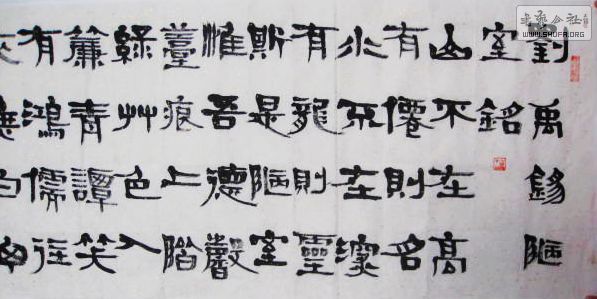 劉禹錫陋
室銘
山不在高
有僊則名
水不在深
有龍則靈
斯是陋室
惟吾德馨
薹痕上階
綠艸色入
簾青譚笑
有鴻儒往
WWW.SHUFA.ORG